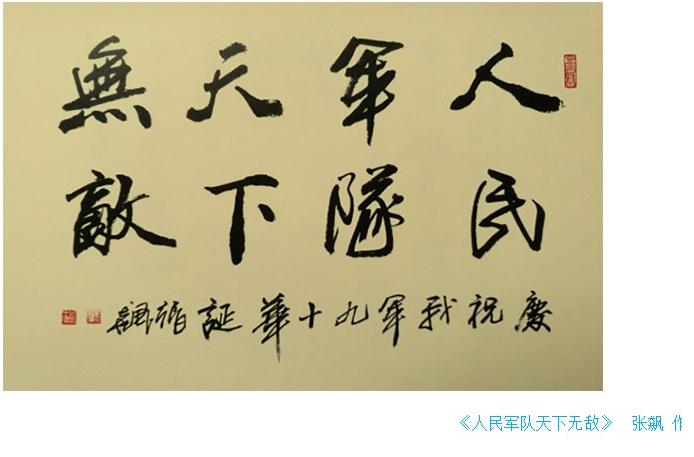 人民
軍隊
天下
無敵
慶祝我軍九十華誕 張飆
《人民军队天下无敌》 张飙 作